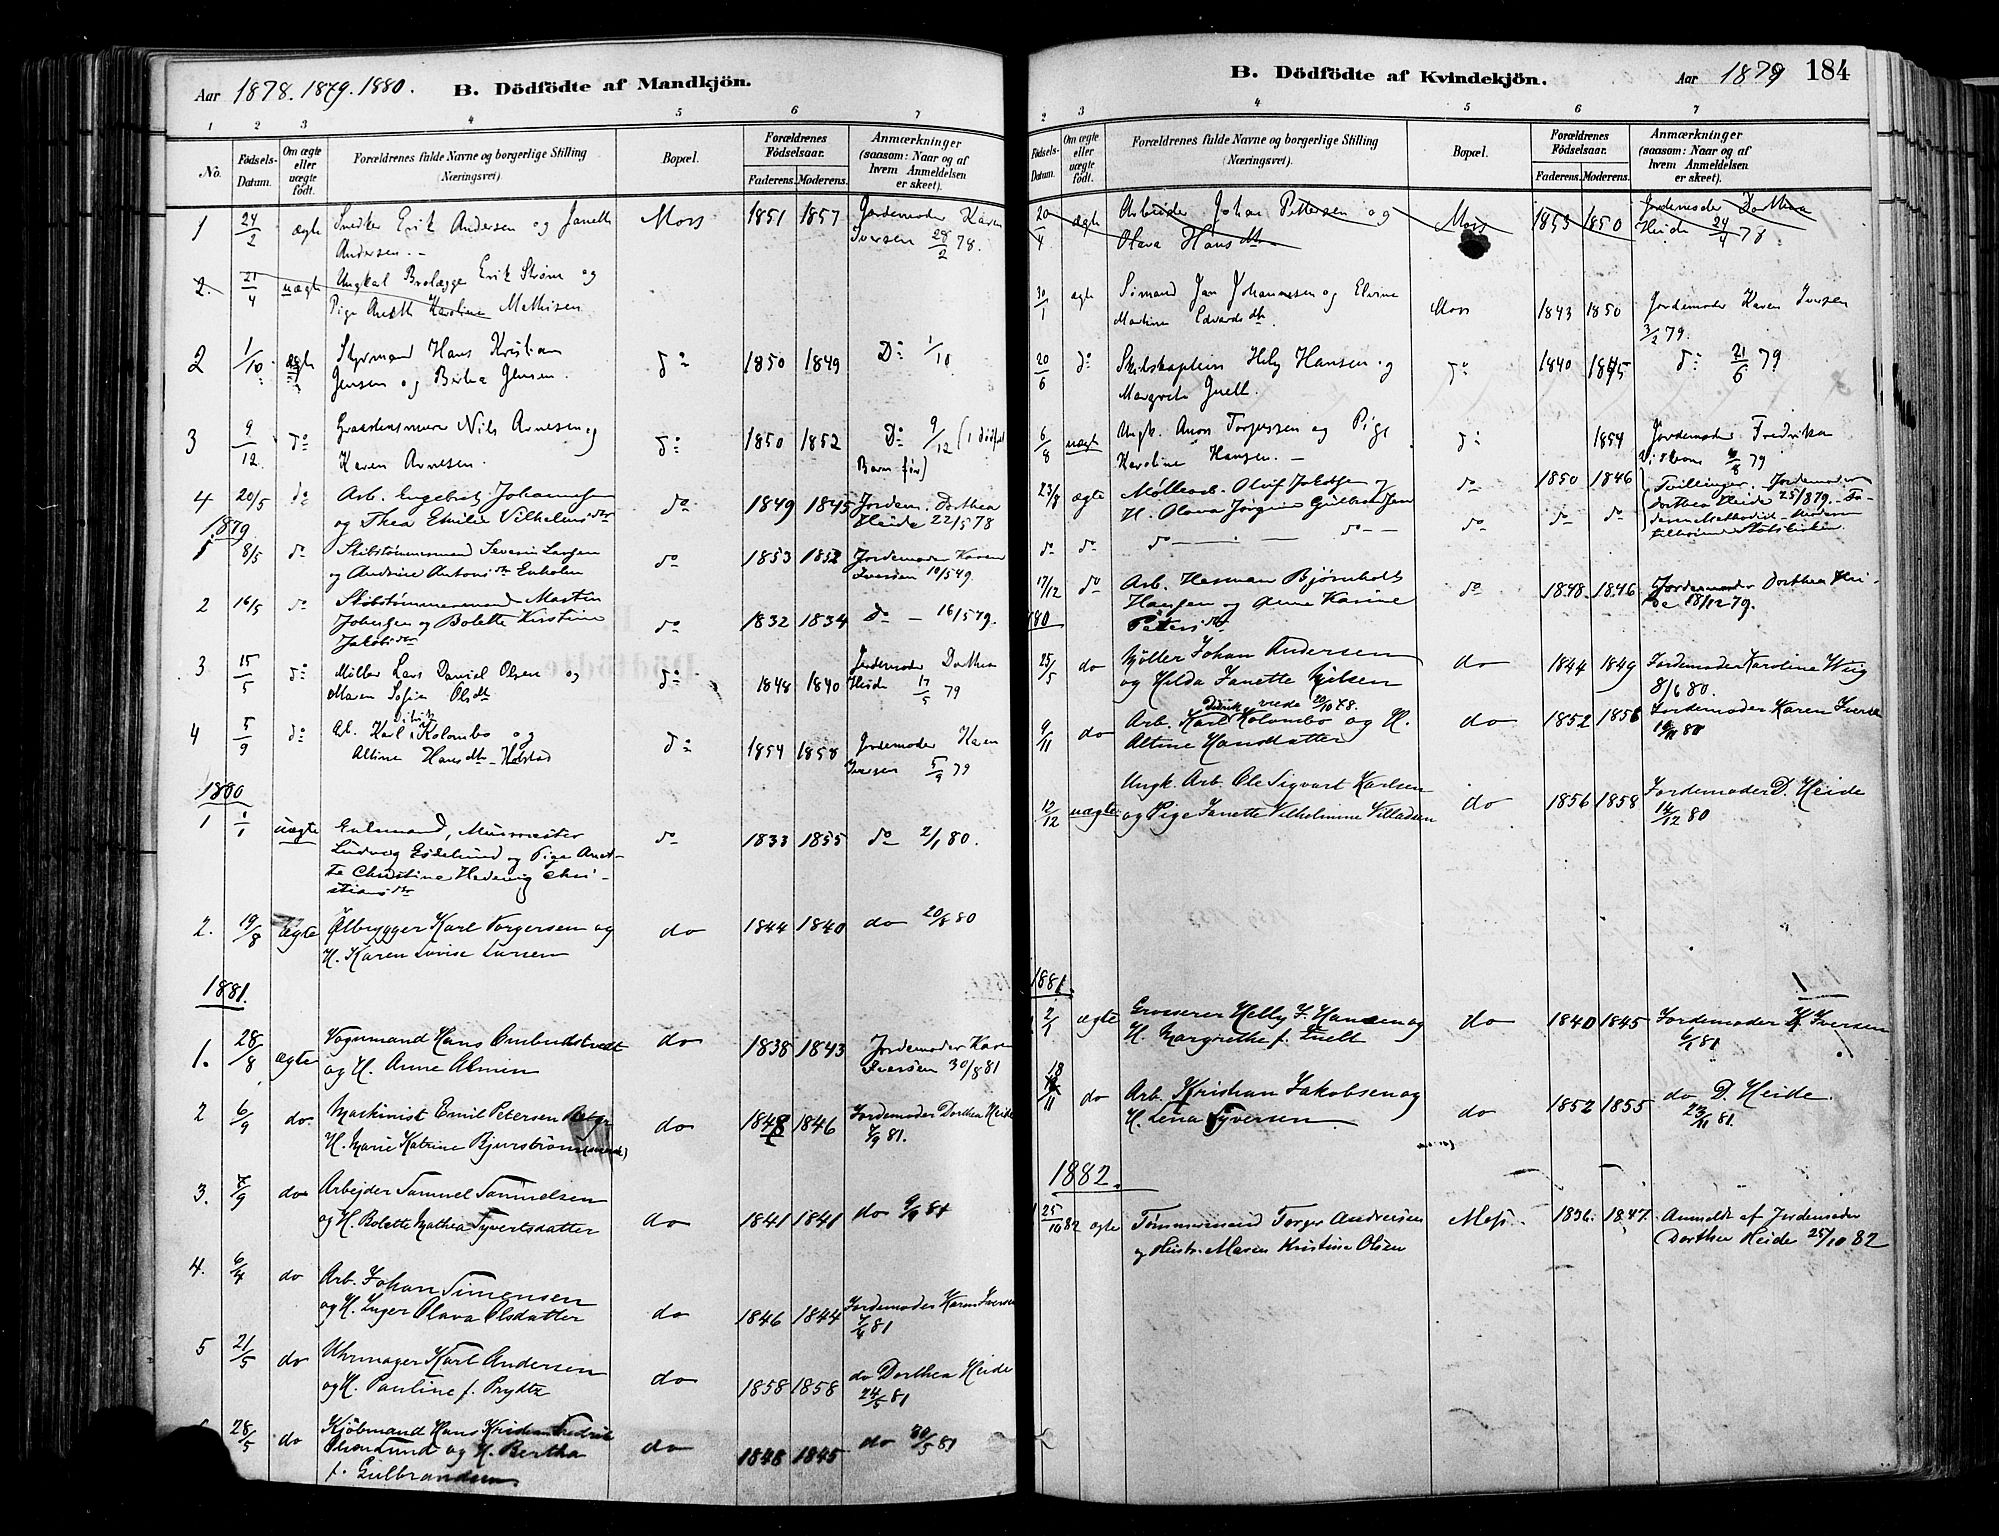 Aar 1878. 1879. 1880. B. Dödfödte af Mandkjön.
1 2 3 4 5 6 7
No. Födsels-Datum. Om ægte eller uægte födt. Forældrenes fulde Navne og borgerlige Stilling (Næringsvei). Bopæl. Forældrenes Födselsaar. Faderens. Moderens. Anmærkninger (saasom: Naar og af hvem Anmeldelsen er skeet).
1 24/2 ægte Snedker Erik Andersen og Janeth Moss 1851 1857 Jordemoder Karen
Andersen. Iversen 28/2 78.
2. 21/4 uægte Ungkal Brolægge Erik Strøm og
Pige Aneth Karoline Mathisen
2 1/10 ægte Styrmand Hans Kristian do 1850 1849 Do 1/10
Jensen og Jensen.
3 9/12 do Nils Arnesen og do 1850 1852 Do 9/12 (1 dødf.
Karen Arnesen. Barn før)
4 20/5 do Arb. Engebret Johannesen do 1849 1845 Jordem. Dorthea
og Thea Emilie Vilhelmsdtr Heide 22/5 78
1879
1 8/5 do Skibstømmermand Severin Larsen do 1853 1852 Jordemoder Karen
og Andrine Antonsdtr Enholm Iversen 10/5 79.
2 16/5 do Skibstømmermand Martin do 1832 1834 do — 16/5 79.
Johansen og Bolette Kirstine
Jakobsdtr
3 15/5 do Møller Lars Daniel Olsen og do 1848 1840 Jordemoder Dorthea
Maren Sofie Olsdtr Heide 17/5 79
4 5/9 do Ab. Karl Didrik Kolombo og do 1854 1858 Jordemoder Karen
Altine Hansdtr Holstad Iversen 5/9 79
1880
1 1/1 uægte Enkemand, Murmester do 1833 1855 do 2/1 80.
Ludvig Eskelund og Pige Anet-
te Christine Hedevig Chri-
stiansdtr
2. 19/8 ægte Ølbrygger Karl Torgersen og do 1844 1840 do 20/8 80
H. Karen Lovise Larsen
1881.
1. 28/8 ægte Vognmand Hans Ombudstvedt do 1838 1843 Jordemoder Karen
og H. Anne Almin Iversen 30/8 81
2 6/9 do Maskinist Emil Petersen do 1848 1846 Jordemoder Dorthea Heide
H. Marie Katrine Bjurstrøm 7/9 81.
3. 7/9 do Arbejder Samuel Samuelsen
og H. Bolette Mathea Syvertsdatter do 1841 1841 do 9/9 81
4. 6/4 do Arb. Johan Simensen
og H. Inger Olava Olsdatter do 1846 1844 Jordemoder Karen Iversen
5 21/5 do Uhrmager Karl Andersen
og H. Pauline f. Prydtz do 1858 1858 do Dorthea Heide
24/5 81
28/5 do Kjøbmand Hans Kristian Fredrik
Lund og H. Bertha do 1848 1845 do 30/5 81
f. Gulbrandsen
B. Dödfödte af Kvindekjön. Aar 1879 184
2 3 4 5 6 7
Födsels-Datum. Om ægte eller uægte födt. Forældrenes fulde Navne og borgerlige Stilling (Næringsvei). Bopæl. Forældrenes Födselsaar. Faderens. Moderens. Anmærkninger (saasom: Naar og af hvem Anmeldelsen er skeet).
20/4 ægte Arbeider Johan Pettersen og Moss 1853 1850 Jordemoder Dorthea
Olava Hansdtr Heide 24/4 78
30/1 ægte Sømand Jan Johannesen og Elvine Moss 1843 1850 Jordemoder Karen Iversen
Martine Edvardsdtr. 3/2 79.
20/6 do Skibskaptein Hely Hansen og do 1840 1845 do 21/6 79
Margrete Juell.
6/8 uægt Ungk. Anon Torgersen og Pige do 1854 Jordemoder Fredrikka
Karoline Hansen. 79
23/8 ægte Møllearb. Oluf Jakobsen og do 1850 1846 Tvillinger. Jordemoder
H. Olava Jørgine Gulbrandsen do do do Dorthea Heide 25/8 79. Fa-
do do do — do — deren Methodist. Moderen
tilhører Statskirken
17/12 do Arb. Herman Bjørnholt do 1848 1846 Jordemoder Dorthea Hei-
Hansen og Anne Karine de 18/12 79.
80 Petersdtr
25/5 do Møller Johan Andersen do 1844 1849 Jordemoder Karoline Wiig
og Hilda Janette Nilsen 8/6 80.
9/11 do Arb. Karl Didrik Kolombo og H. do 1852 1856 Jordemoder Karen Iversen
Altine Hansdatter 80
12/12 uægte Ungk. Arb. Ole Sigvart Karlsen
og Pige Janette Vilhelmine Villadsen do 1856 1858 Jordemoder D. Heide
14/12 80
1881.
2/1 ægte Grosserer Helly J. Hansen og do 1840 1845 Jordemoder K Iversen
H. Margrethe f. Juell 81
18/11 do Arb. Kristian Jakobsen og do 1852 1855 do D. Heide.
H. Lena Syversen 23/11 81.
1882.
25/10 82 ægte Tømmermand Torger Andersen Moss. 1836. 1847. Anmeldt af Jordemoder
og Hustr. Maren Kristine Olsen Dorthea Heide 25/10 82